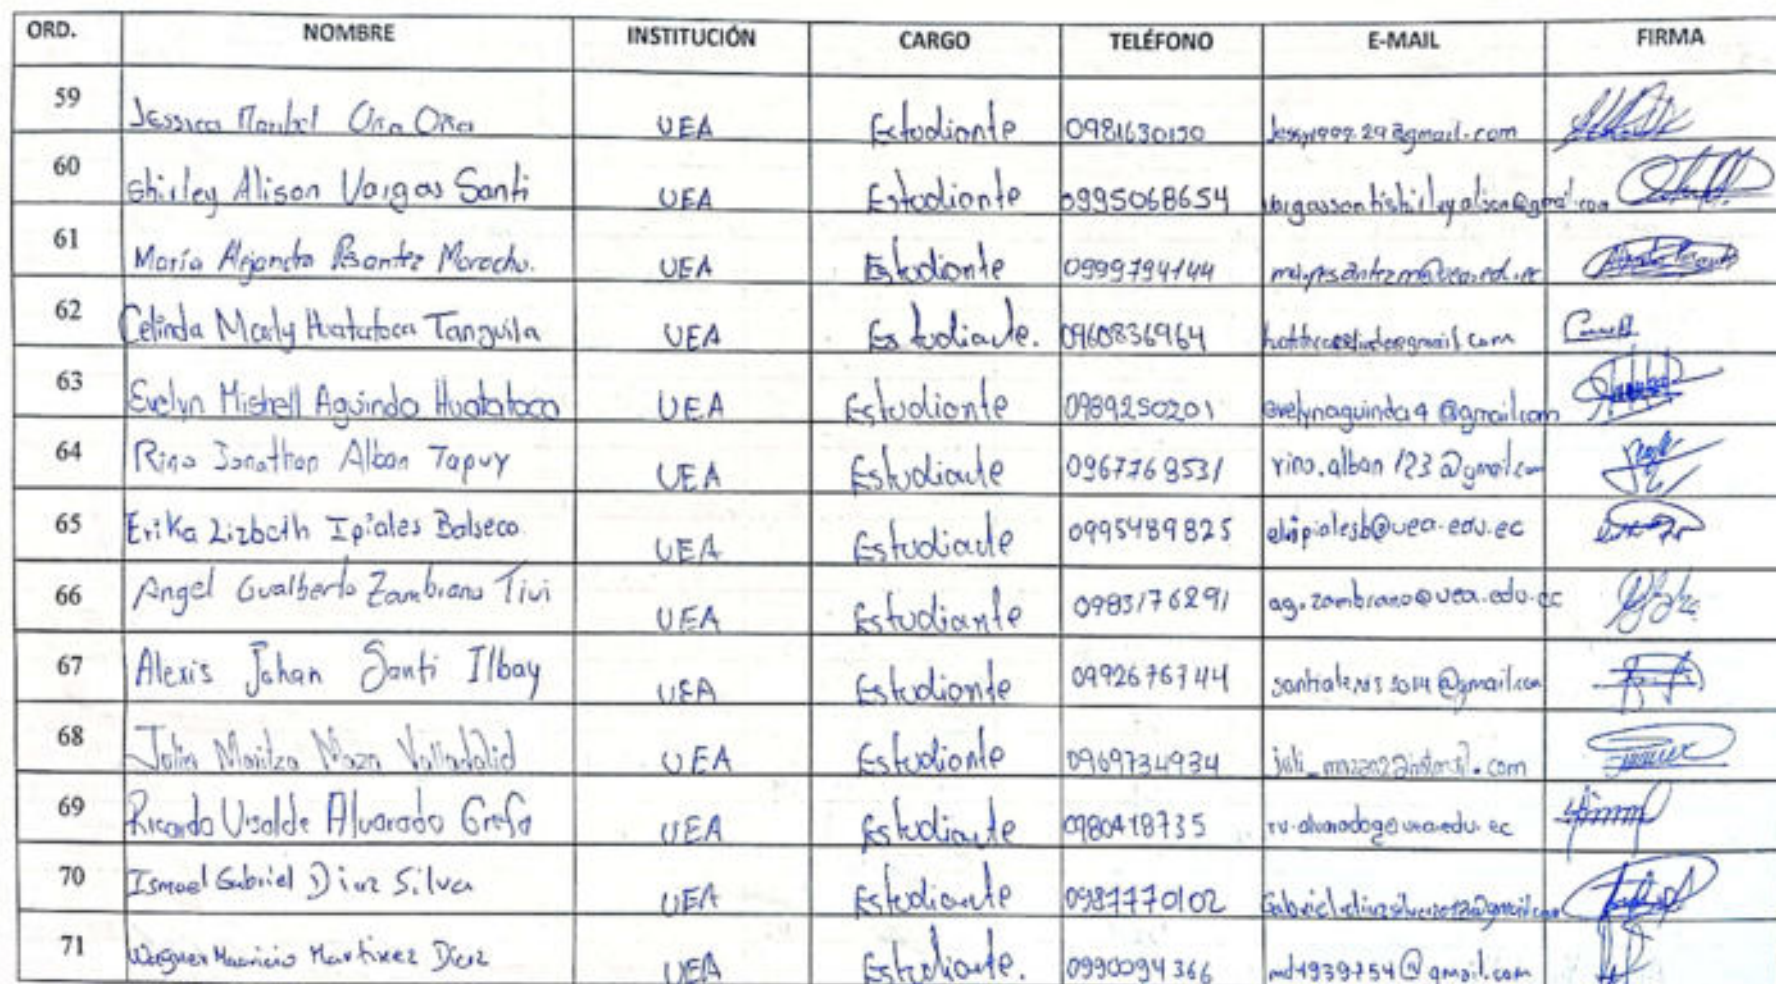 ORD. NOMBRE INSTITUCIÓN CARGO TELÉFONO E-MAIL FIRMA
59 Jessica Maribel Oña Oña UEA Estudiante 0981630150
60 Shirley Alison Vargas Santi UEA Estudiante 0995068654 vargassantishirleyalison@gmail.com
61 María Alejandra Pesantez Morocho. UEA Estudiante 0999794144
62 Celinda Huatatoca Tanguila UEA Estudiante. 0960836964
63 Evelyn Mishell Aguinda Huatatoca UEA Estudiante 0989250201 evelynaguinda4@gmail.com
64 Rino Jonathan Alban Tapuy UEA Estudiante 0967769531 rino.alban123@gmail.com
65 Erika Lizbeth Ipiales Balseca UEA Estudiante 0995489825 elipialesb@uea.edu.ec
66 Angel Gualberto Zambrano Tivi UEA Estudiante 0983176291 ag.zambrano@uea.edu.ec
67 Alexis Johan Santi Ilbay UEA Estudiante 0992676744
68 Julia Maritza Maza Valladolid UEA Estudiante 0969734934
69 Ricardo Visalde Alvarado Grefa UEA Estudiante 0980418735 rv.alvaradog@uea.edu.ec
70 Ismael Gabriel Diaz Silva UEA Estudiante 0987770102
71 Wagner Mauricio Martinez Diaz UEA Estudiante. 0990094366 md4939754@gmail.com